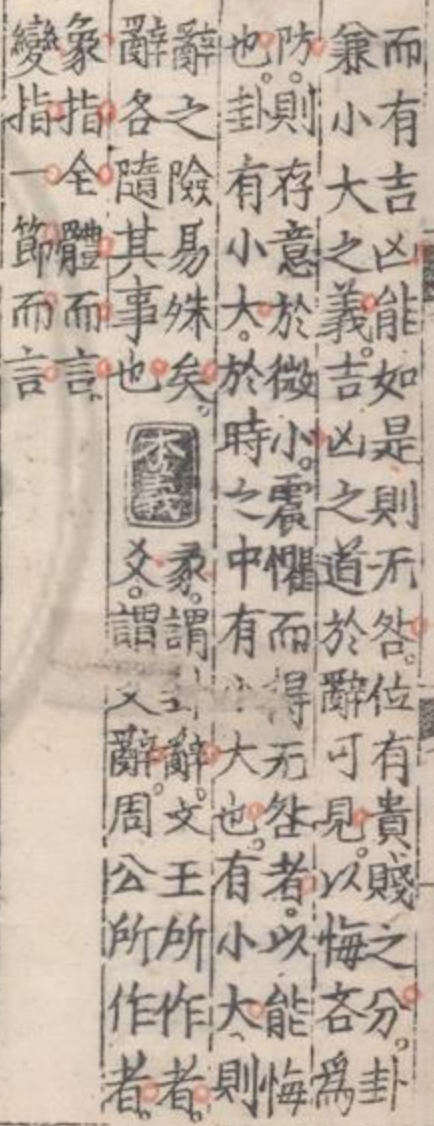 而有吉凶能如是則无咎。位有貴賤之分。卦
兼小大之義。吉凶之道於辭可見。以悔吝爲
防。則存意於微小。震懼而得无咎者。以能悔
也。卦有小大。於時之中有小大也。有小大、則
辭之險易殊矣。
辭各隨其事也
本義
彖。謂卦辭。文王所作者。
爻。謂爻辭。周公所作者。
象指全體而言、
變指一節而言